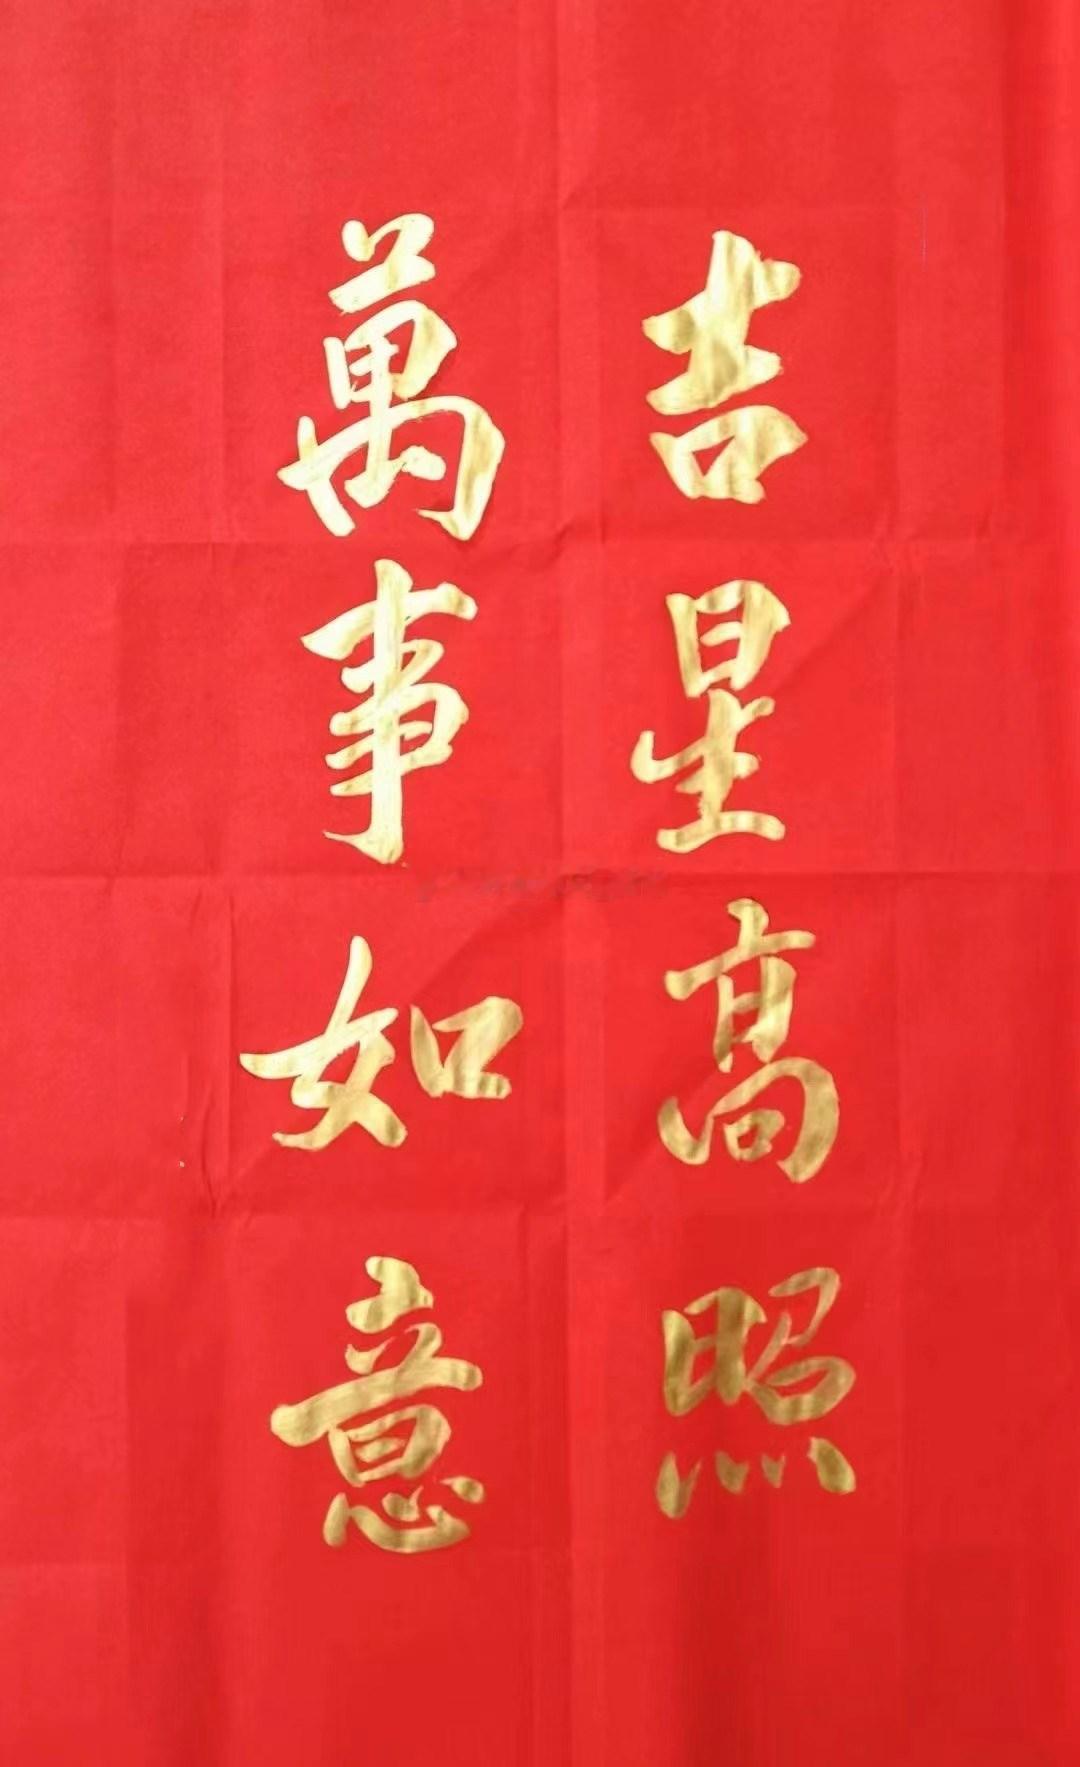 吉星高照
萬事如意